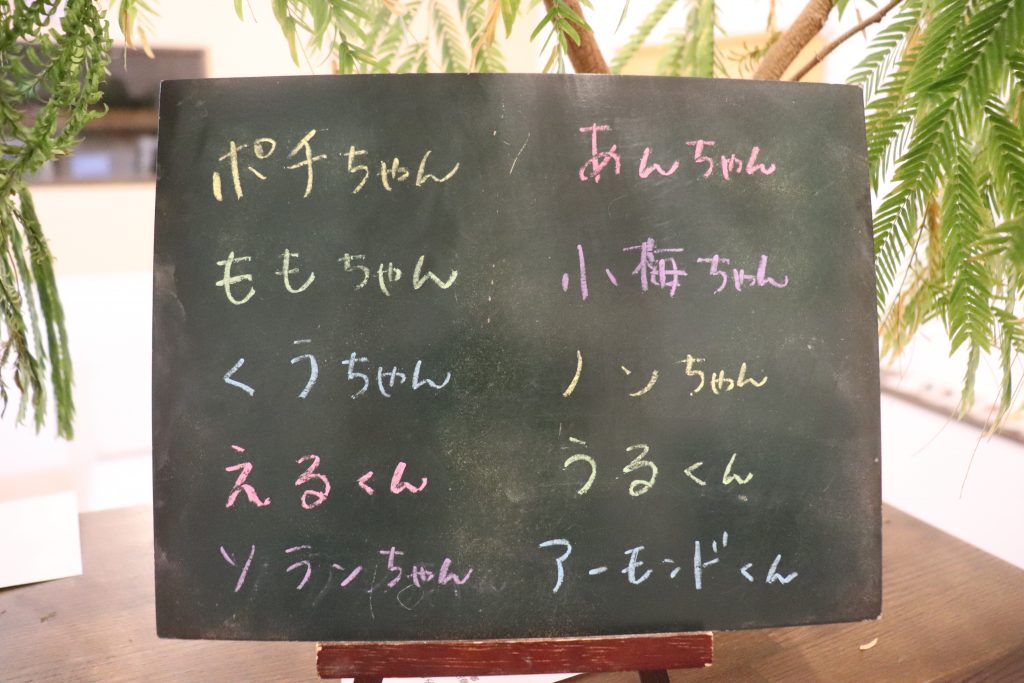 ポチちゃん
ももちゃん
くうちゃん
えるくん
ソランちゃん
あんちゃん
小梅ちゃん
ノンちゃん
うるくん
アーモンドくん